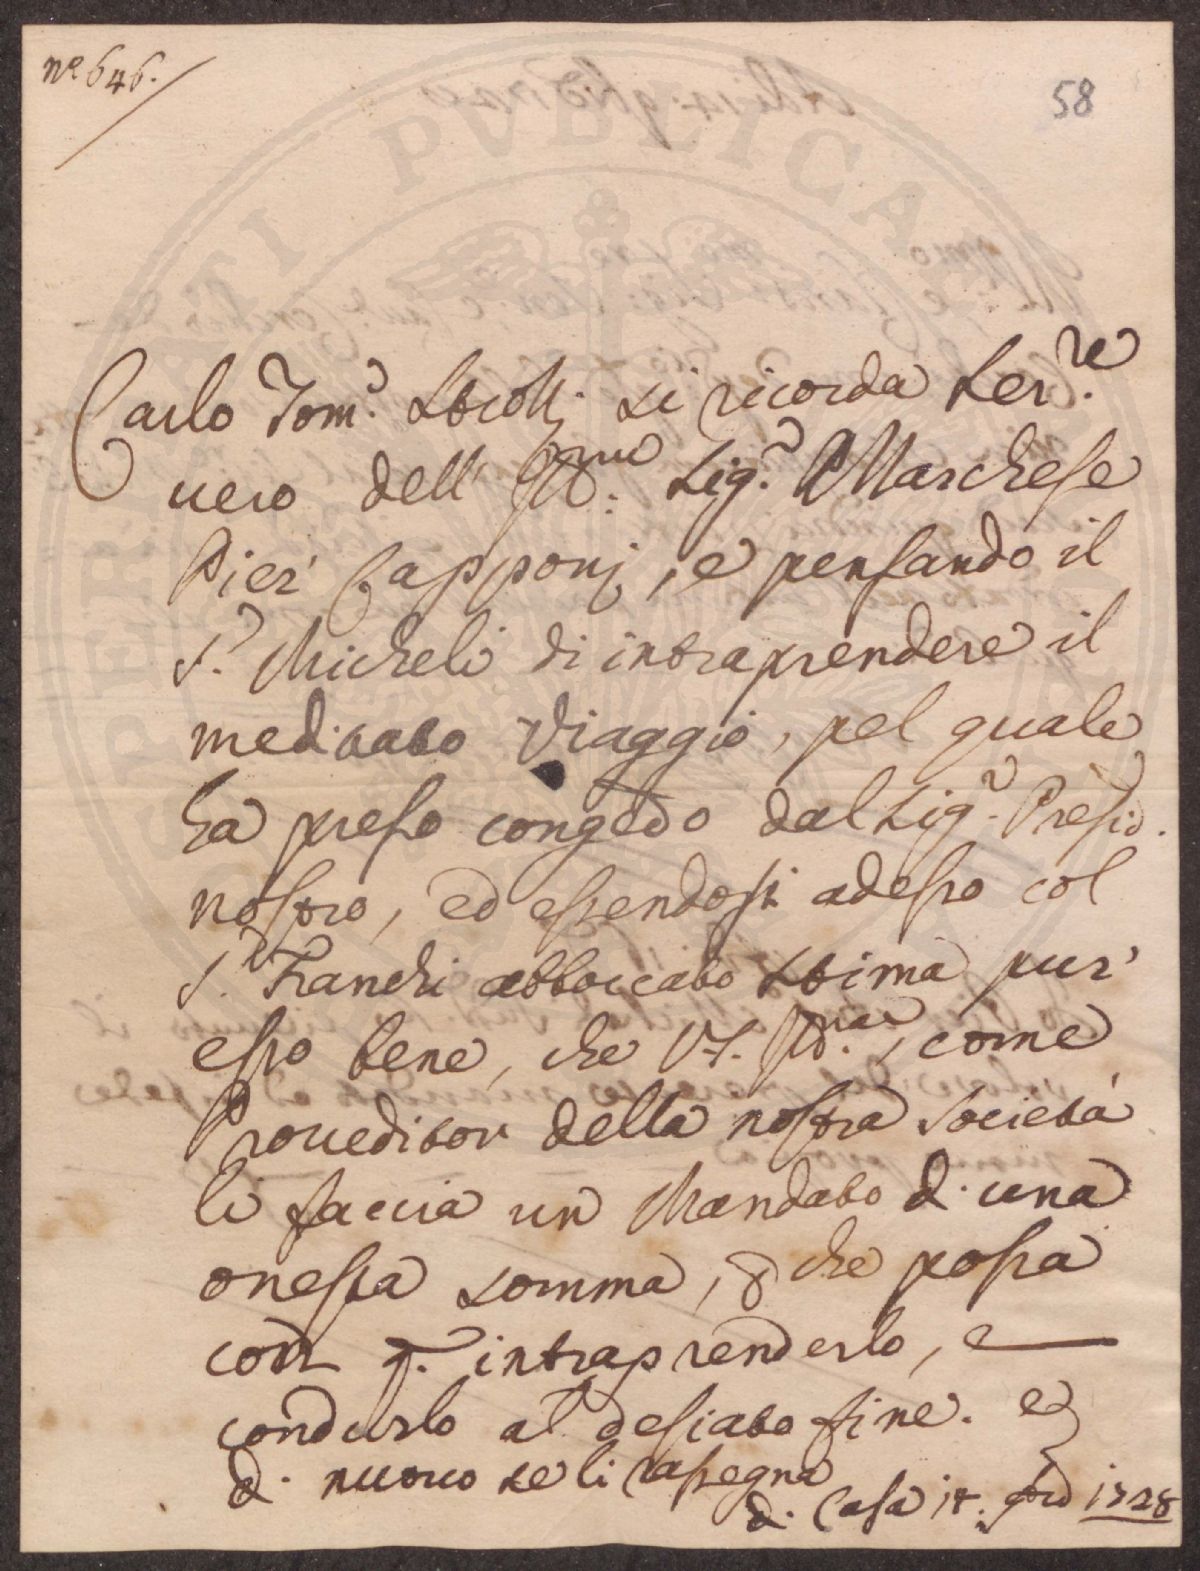 nº. 646.
58
Carlo Tom.º Strozzi si ricorda Ser.re
vero dell' Ill.mo Sig.r Marchese
Pier' Capponj, e pensando il
S.r Micheli di intraprendere il
meditato Viaggio, pel quale
ha preso congedo dal Sig.r Presid.
nostro, ed essendosi adesso col
S.r Franchi abboccato stima pur'
esso bene, che V.S. Ill.ma, come
Proveditor della nostra Società
li faccia un Mandato d. una
onesta somma, che possa
con q. intraprenderlo, e
condurlo al desiato fine. e
d. nuovo se li rassegna
d. Casa 14. 9bre 1728
SPERNATI PVBLICA